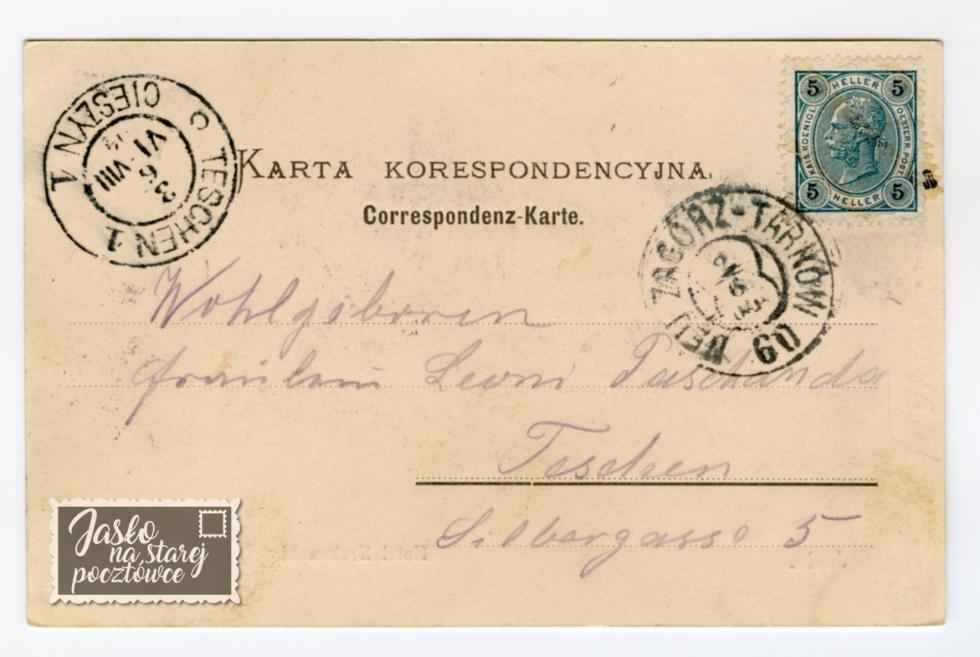 TESCHEN 1
CIESZYN 1
c
3
6 VIII
VI
5 HELLER 5
KAIS. KOENIGL. OESTERR. POST
5 HELLER 5
KARTA KORESPONDENCYJNA.
Correspondenz-Karte.
NEU ZAGÓRZ-TARNÓW
60
Wohlgeboren
Fräulein Leoni Paschanda
Teschen
Silbergasse 5
Jasło
na starej
pocztówce